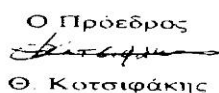 Ο Πρόεδρος
Θ. Κοτσιφάκης